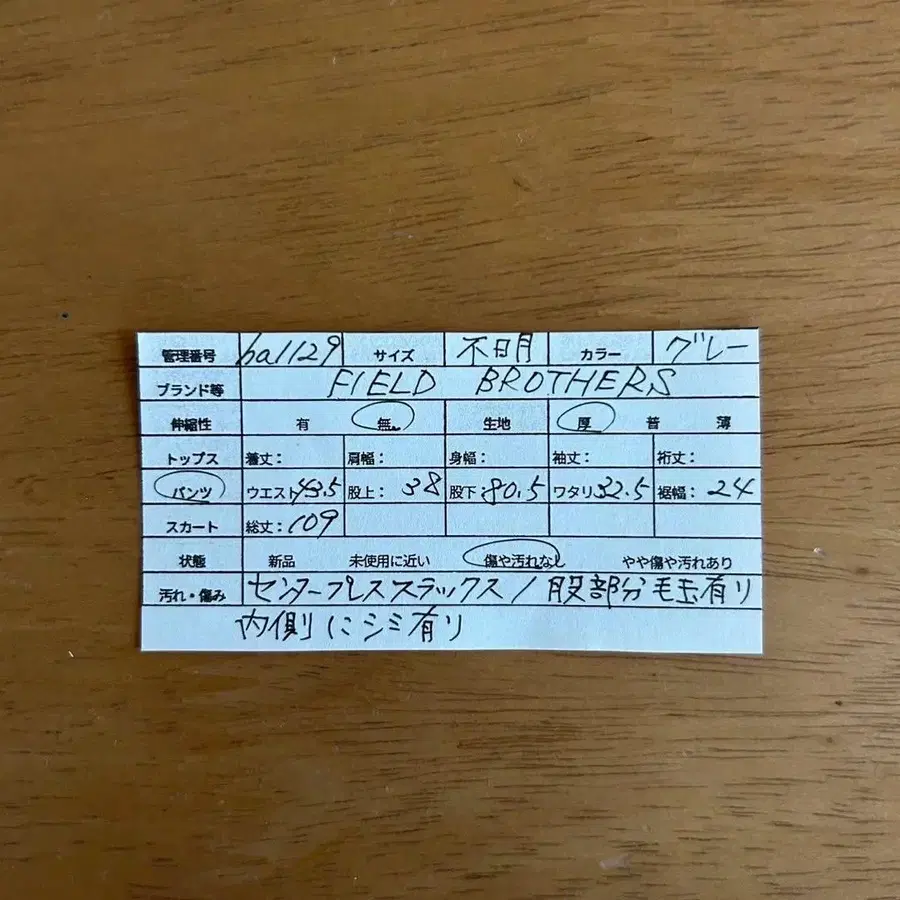 管理番号 ha1129 サイズ 不明 カラー グレー
ブランド等 FIELD BROTHERS
伸縮性 有 無 生地 厚 普 薄
トップス 着丈: 肩幅: 身幅: 袖丈: 裄丈:
パンツ ウエスト43.5 股上:38 股下:80.5 ワタリ32.5 裾幅:24
スカート 総丈:109
状態 新品 未使用に近い 傷や汚れなし やや傷や汚れあり
汚れ・傷み センタープレススラックス/股部分毛玉有り
内側にシミ有り